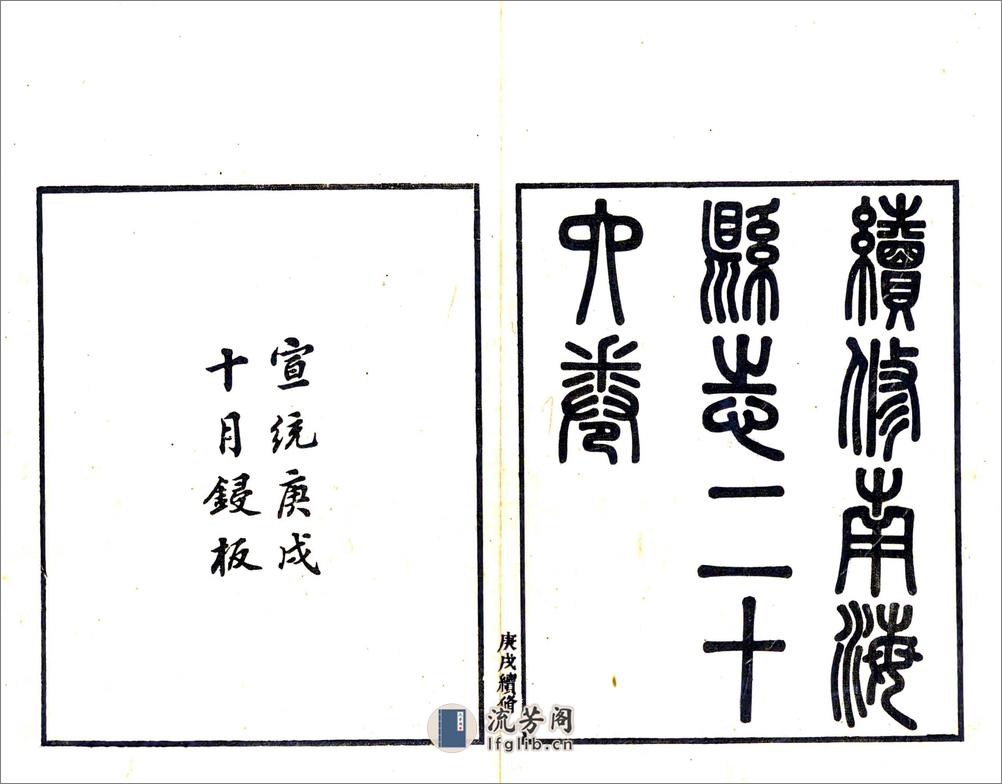 續修南海
縣志二十
六卷
宣統庚戌
十月鋟板
庚戌續修
流芳阁
lfglib.cn